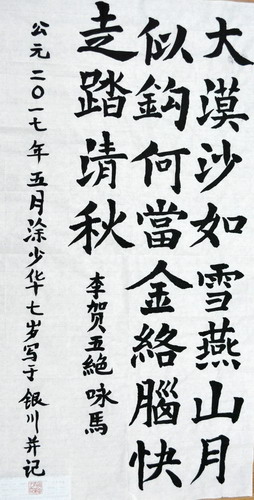 大漠沙如雪燕山月
似鈎何當金絡腦快
走踏清秋
李贺五絶咏馬
公元二〇一七年五月涂少华七岁写于银川并记